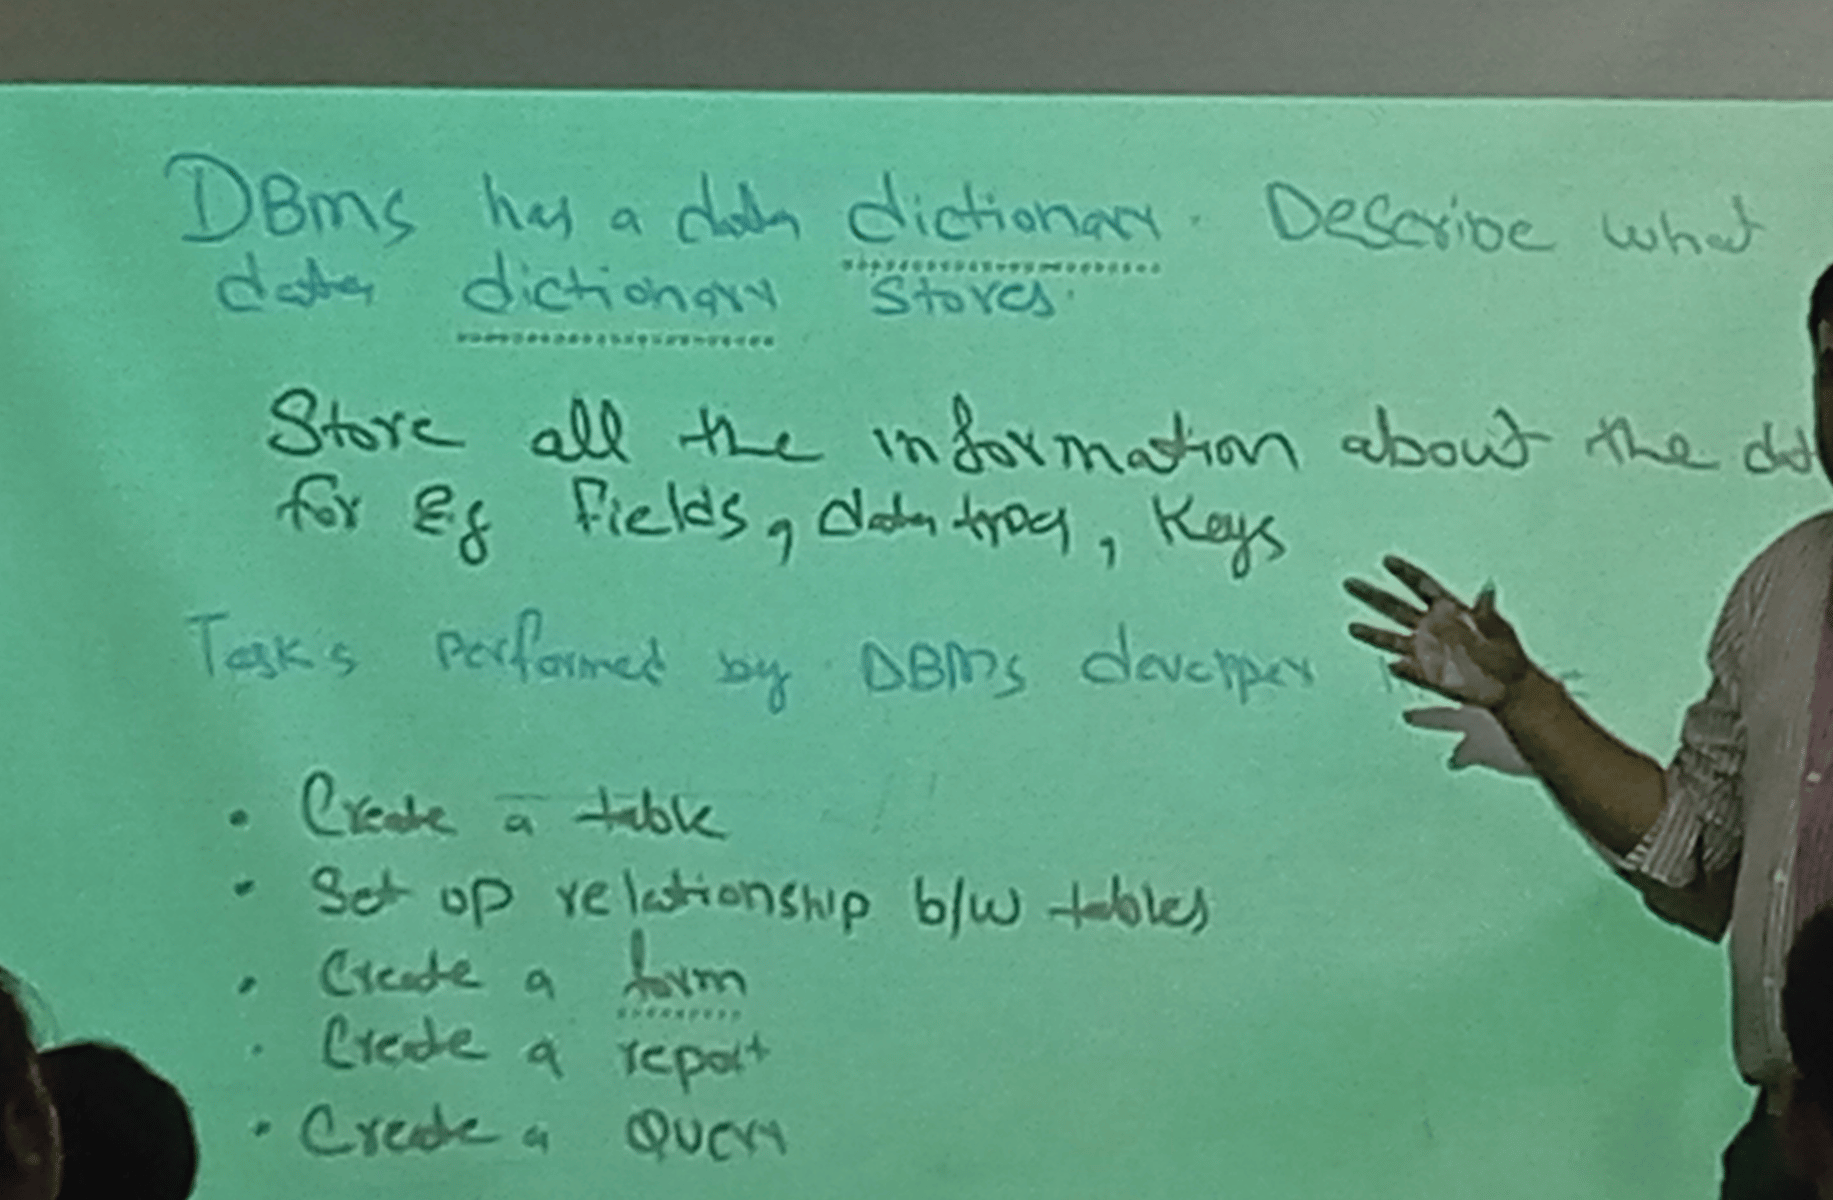 DBMS has a data dictionary. Describe what
data dictionary stores.
Store all the information about the
for Eg Fields, data types, Keys
Tasks performed by DBMS developer
• Create a table
• Set up relationship b/w tables
• Create a form
• Create a report
• Create a Query